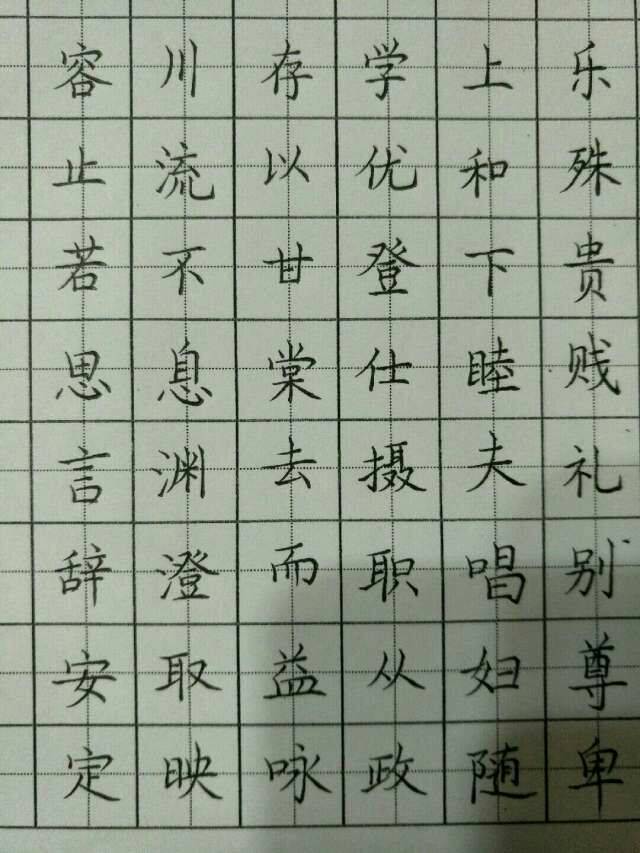 乐殊贵贱礼别尊卑
上和下睦夫唱妇随
学优登仕摄职从政
存以甘棠去而益咏
川流不息渊澄取映
容止若思言辞安定